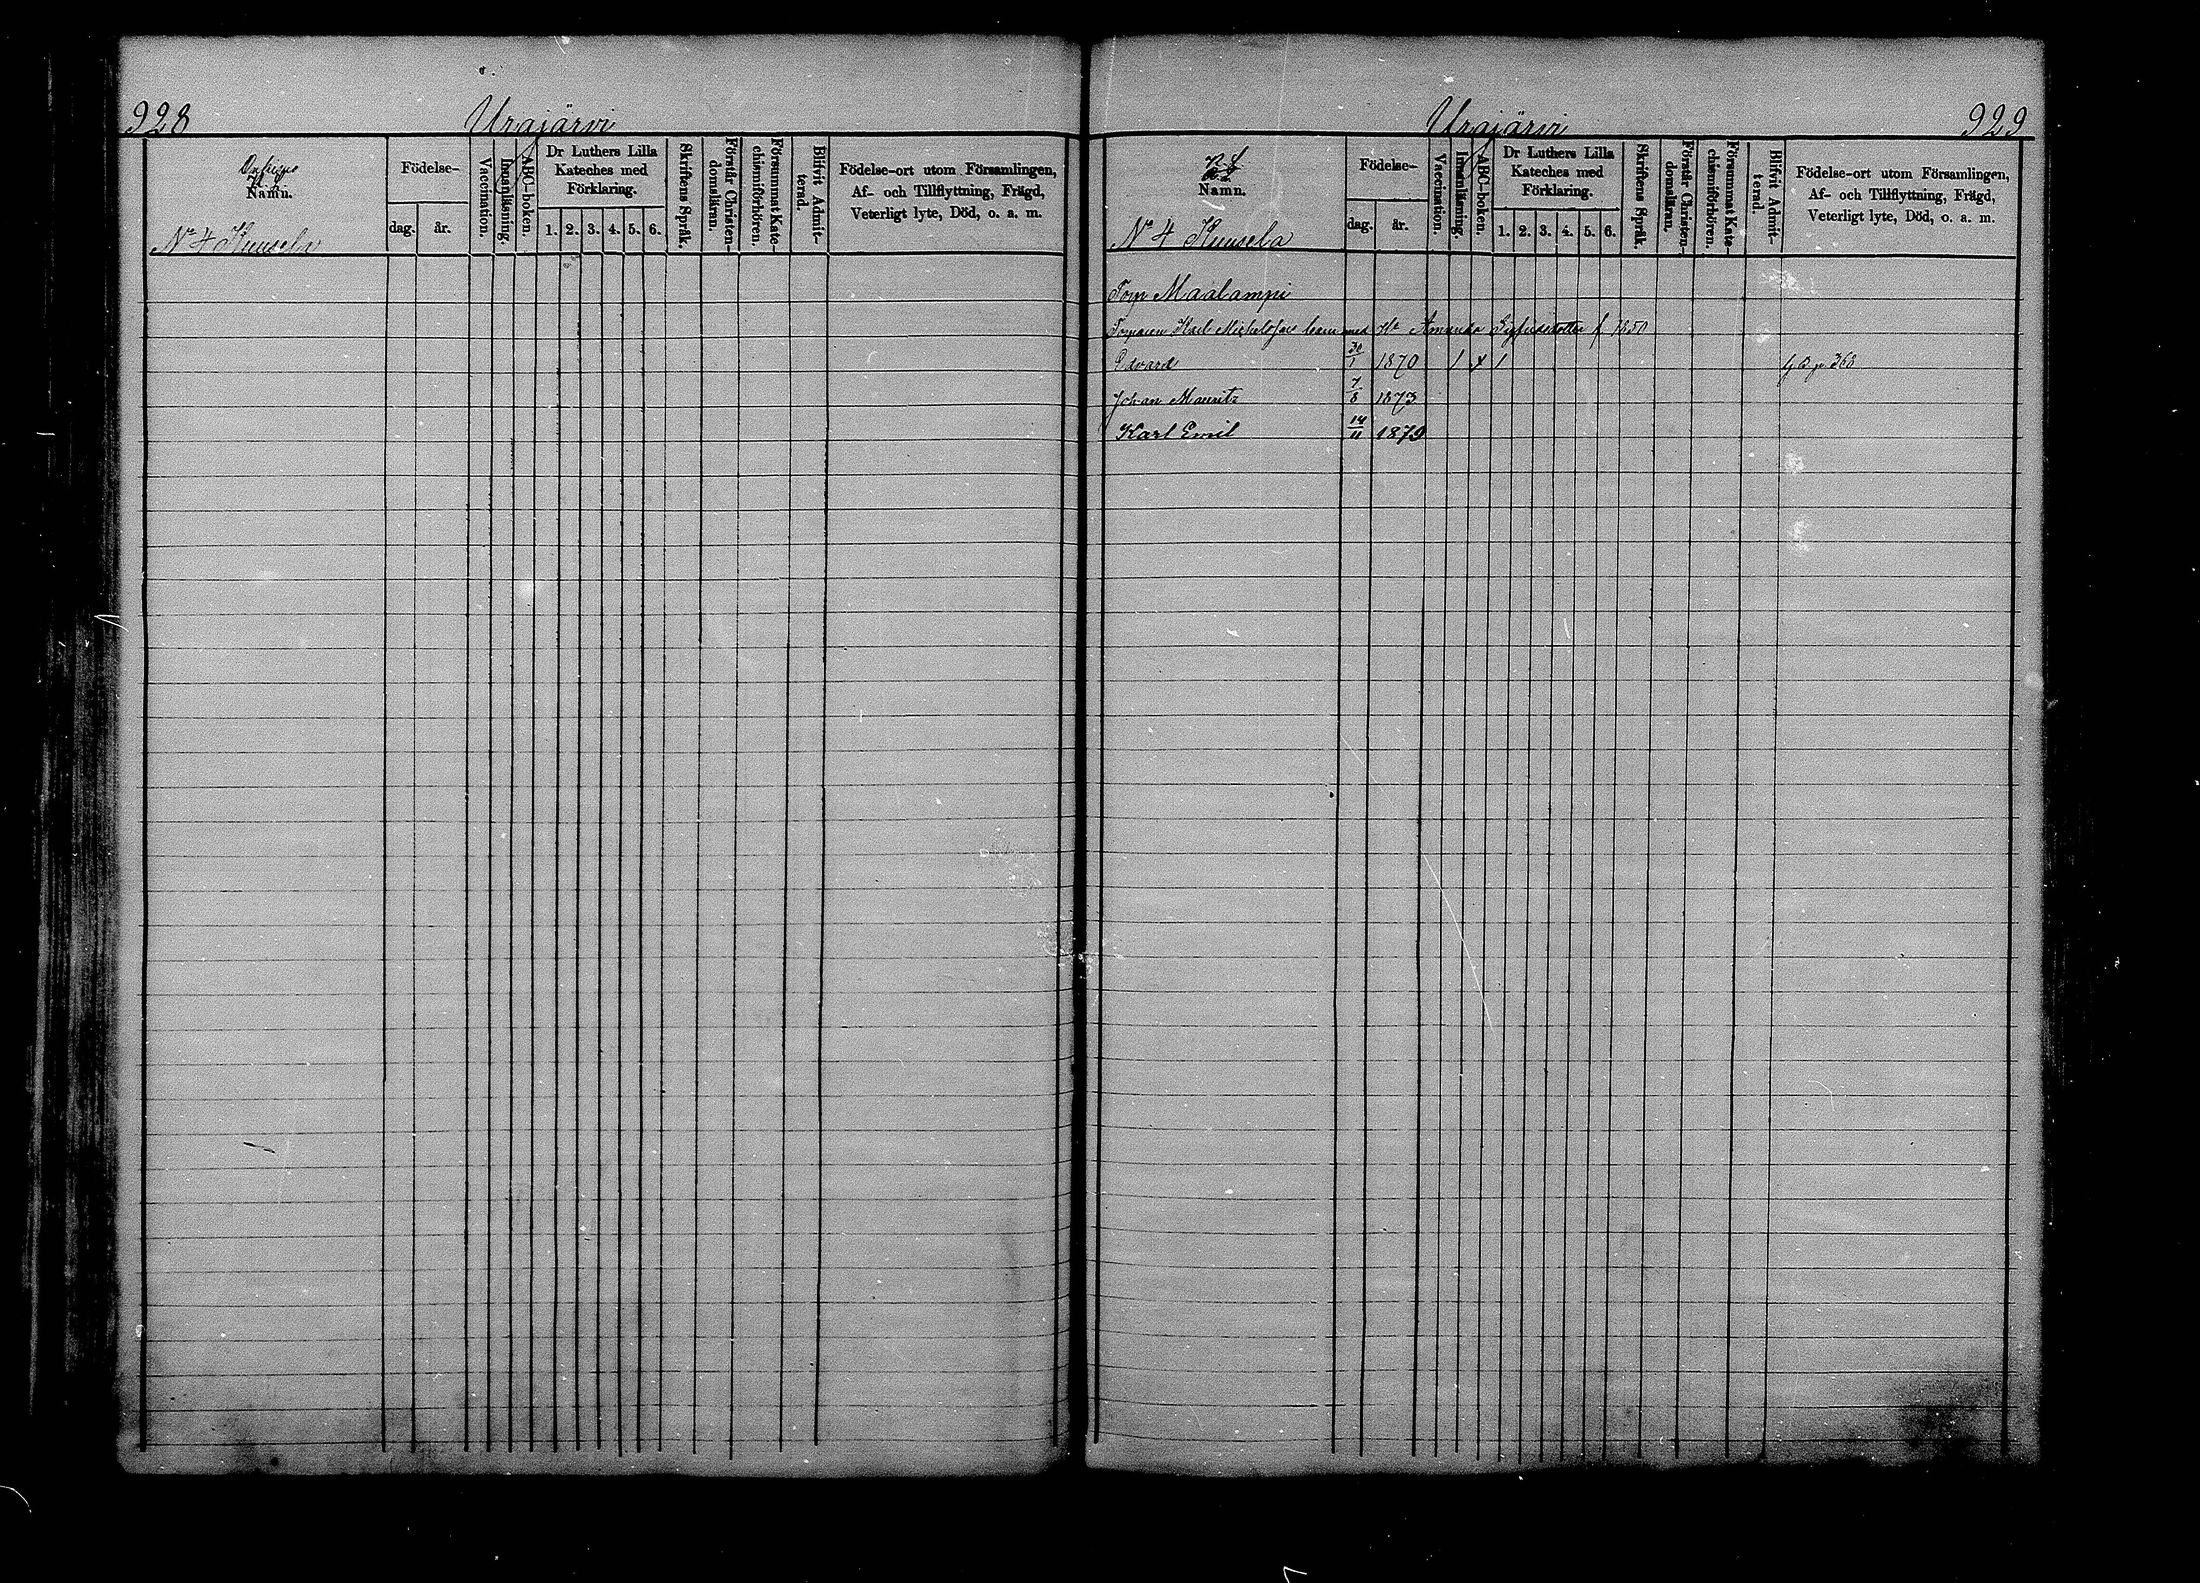 928
Urajärvi
Namn.
Födelse-
dag.
år.
Vaccination.
Innanläsning.
ABC-boken.
Dr Luthers Lilla
Kateches med
Förklaring.
1. 2. 3. 4. 5. 6.
Skriftens Språk.
Förstår Christen-
domsläran.
Försummat Kate-
chismiförhören.
Blifvit Admit-
terad.
Födelse-ort utom Församlingen,
Af- och Tillflyttning, Frägd,
Veterligt lyte, Död, o. a. m.
No 4 Kuusela
Urajärvi
929
Namn.
Födelse-
dag.
år.
Vaccination.
Innanläsning.
ABC-boken.
Dr Luthers Lilla
Kateches med
Förklaring.
1. 2. 3. 4. 5. 6.
Skriftens Språk.
Förstår Christen-
domsläran.
Försummat Kate-
chismiförhören.
Blifvit Admit-
terad.
Födelse-ort utom Församlingen,
Af- och Tillflyttning, Frägd,
Veterligt lyte, Död, o. a. m.
No 4 Kuusela
Torp Maalampi
Torparen Karl Michelsson barn med Amanda Sigfridsdotter f 1850
Edvard 30/1 1870 1 x 1 p 368
Johan Mauritz 7/8 1873
Karl Emil 14/11 1879